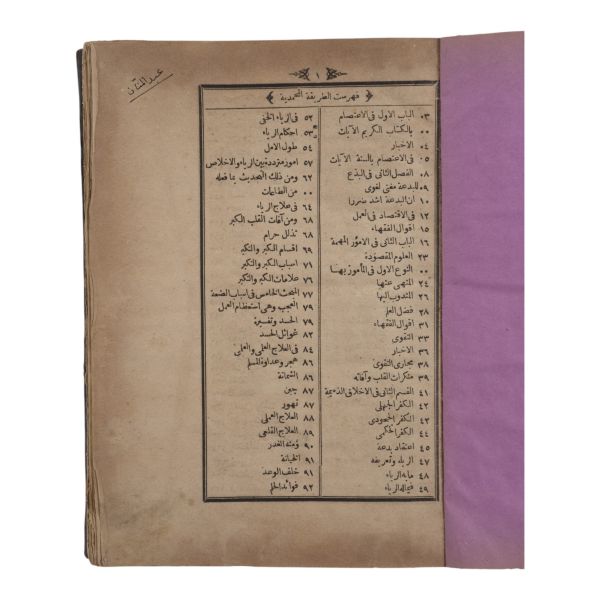 عبد المنان
١
فهرست الطريقة المحمدية
٠٣ الباب الاول فى الاعتصام
٠٠ بالكتاب الكريم الآيات
٠٤ الاخبار
٠٥ فى الاعتصام بالسنة الآيات
٠٨ الفصل الثانى فى البدع
٠٩ للبدعة معنى لغوى
١٠ ان البدعة اشد ضررا
١٢ فى الاقتصاد فى العمل
١٥ اقوال الفقهاء
١٦ الباب الثانى فى الامور المهمة
٢٣ العلوم المقصودة
٠٠ النوع الاول فى المأمور بها
٢٤ المنهى عنها
٢٧ المندوب اليها
٢٨ فضل العلم
٣١ اقوال الفقهاء
٣٣ التقوى
٣٦ الاخبار
٣٨ مجارى التقوى
٣٩ منكرات القلب وآفاته
٤١ القسم الثانى فى الاخلاق الذميمة
٤٢ الكفر الجهلى
٤٣ الكفر الجحودى
٤٤ الكفر الحكمى
٤٥ اعتقاد بدعة
٤٧ الرياء وتعريفه
٤٨ مابه الرياء
٤٩ فيماله الرياء
٥٢ فى الرياء الخفى
٥٣ احكام الرياء
٥٤ طول الامل
٥٧ امور مترددة بين الرياء والاخلاص
٦٢ ومن ذلك التحديث بما فعله
٠٠ من الطاعات
٦٤ فى علاج الرياء
٦٨ ومن آفات القلب الكبر
٦٨ تذلل حرام
٦٩ اقسام الكبر والتكبر
٧١ اسباب الكبر والتكبر
٧٦ علامات الكبر والتكبر
٧٧ المبحث الخامس فى اسباب الضعة
٧٩ العجب وهى استعظام العمل
٧٩ الحسد وتفسيره
٨٢ غوائل الحسد
٨٤ فى العلاج العلمى والعملى
٨٦ هجر وعداوة المسلم
٨٦ الشماتة
٨٧ جبن
٨٧ تهور
٨٨ العلاج العملى
٨٩ العلاج القلعى
٩٠ ومنه الغدر
٩١ الخيانة
٩١ خلف الوعد
٩٢ فوائد الحلم